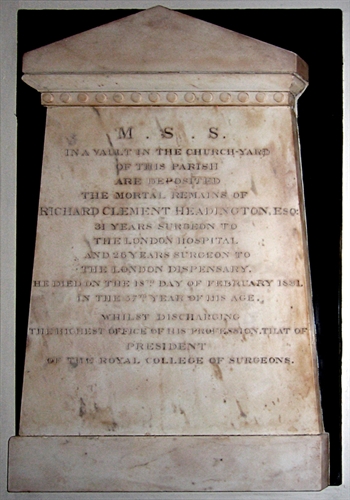 M. S. S.
IN A VAULT IN THE CHURCH-YARD
OF THIS PARISH
ARE DEPOSITED
THE MORTAL REMAINS OF
RICHARD CLEMENT HEADINGTON, ESQ:
31 YEARS SURGEON TO
THE LONDON HOSPITAL
AND 28 YEARS SURGEON TO
THE LONDON DISPENSARY.
HE DIED ON THE DAY OF FEBRUARY 1831.
IN THE 57TH YEAR OF HIS AGE,
WHILST DISCHARGING
THE HIGHEST OFFICE OF HIS PROFESSION, THAT OF
PRESIDENT
OF THE ROYAL COLLEGE OF SURGEONS.